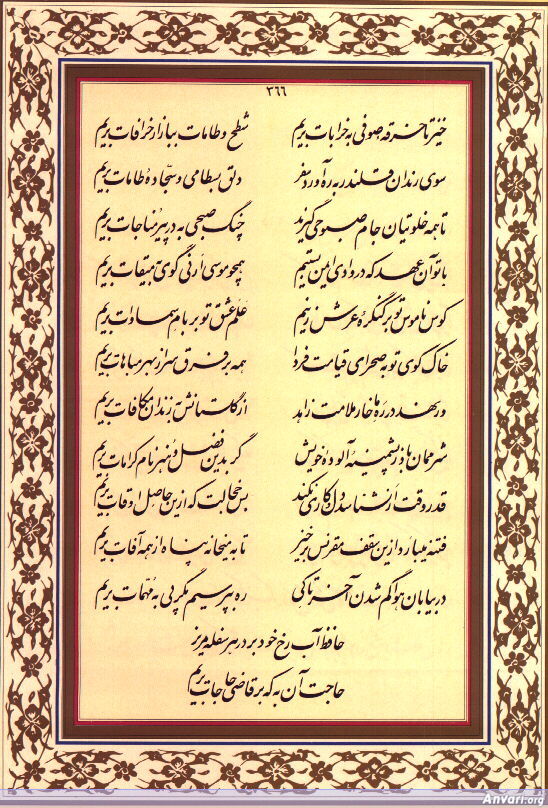 ۳۶۶
خیز تا خرقه صوفی به خرابات بریم شطح و طامات ببازار خرافات بریم
سوی رندان قلندر به ره‌آورد سفر دلق بسطامی و سجاده طامات بریم
تا همه خلوتیان جام صبوحی گیرند چنگ صبحی به در پیر مناجات بریم
با تو آن عهد که در وادی ایمن بستیم همچو موسی ارنی گوی به میقات بریم
کوس ناموس تو بر کنگره عرش زنیم علم عشق تو بر بام سماوات بریم
خاک کوی تو به صحرای قیامت فردا همه بر فرق سر از بهر مباهات بریم
ور نهد در ره ما خار ملامت زاهد از گلستانش به زندان مکافات بریم
شرممان باد ز پشمینه آلوده خویش گر بدین فضل و هنر نام کرامات بریم
قدر وقت ار نشناسد دل و کاری نکند بس خجالت که ازین حاصل اوقات بریم
فتنه میبارد ازین سقف مقرنس برخیز تا به میخانه پناه از همه آفات بریم
در بیابان هوا گم شدن آخر تا کی ره بپرسیم مگر پی به مهمات بریم
حافظ آب رخ خود بر در هر سفله مریز
حاجت آن به که بر قاضی حاجات بریم
Anvari.org